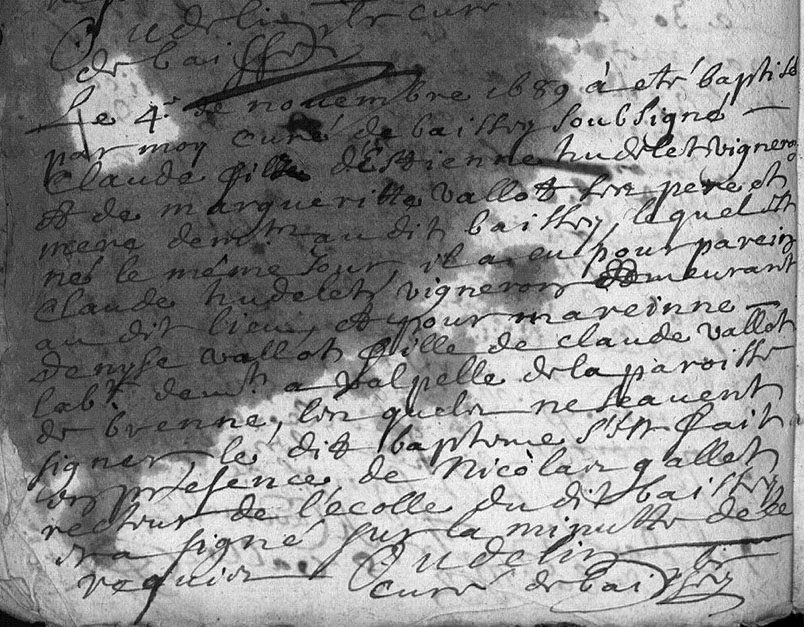 Oudelin le curé
de baissey
Le 4.e de nouembre 1689 à eté baptisé
par moy curé de baissey soubsigné
Claude fils d'Estienne hudelet vigneron
et de margueritte vallot ses pere et
mere demt. au dit baissey, lequel est
nez le même jour, il a eu pour parein
Claude hudelet vigneron demeurant
au dit lieu, et pour mareinne
denyse vallot fille de claude vallot
labr. demt. a valpelle de la paroisse
de brenne, lesquels ne sçauent
signer le dit bapteme s'est fait
en présence de Nicolas gallet
recteur de l'ecolle du dit baissey
qui a signé sur la minutte de ce
requis Oudelin
curé de baissey